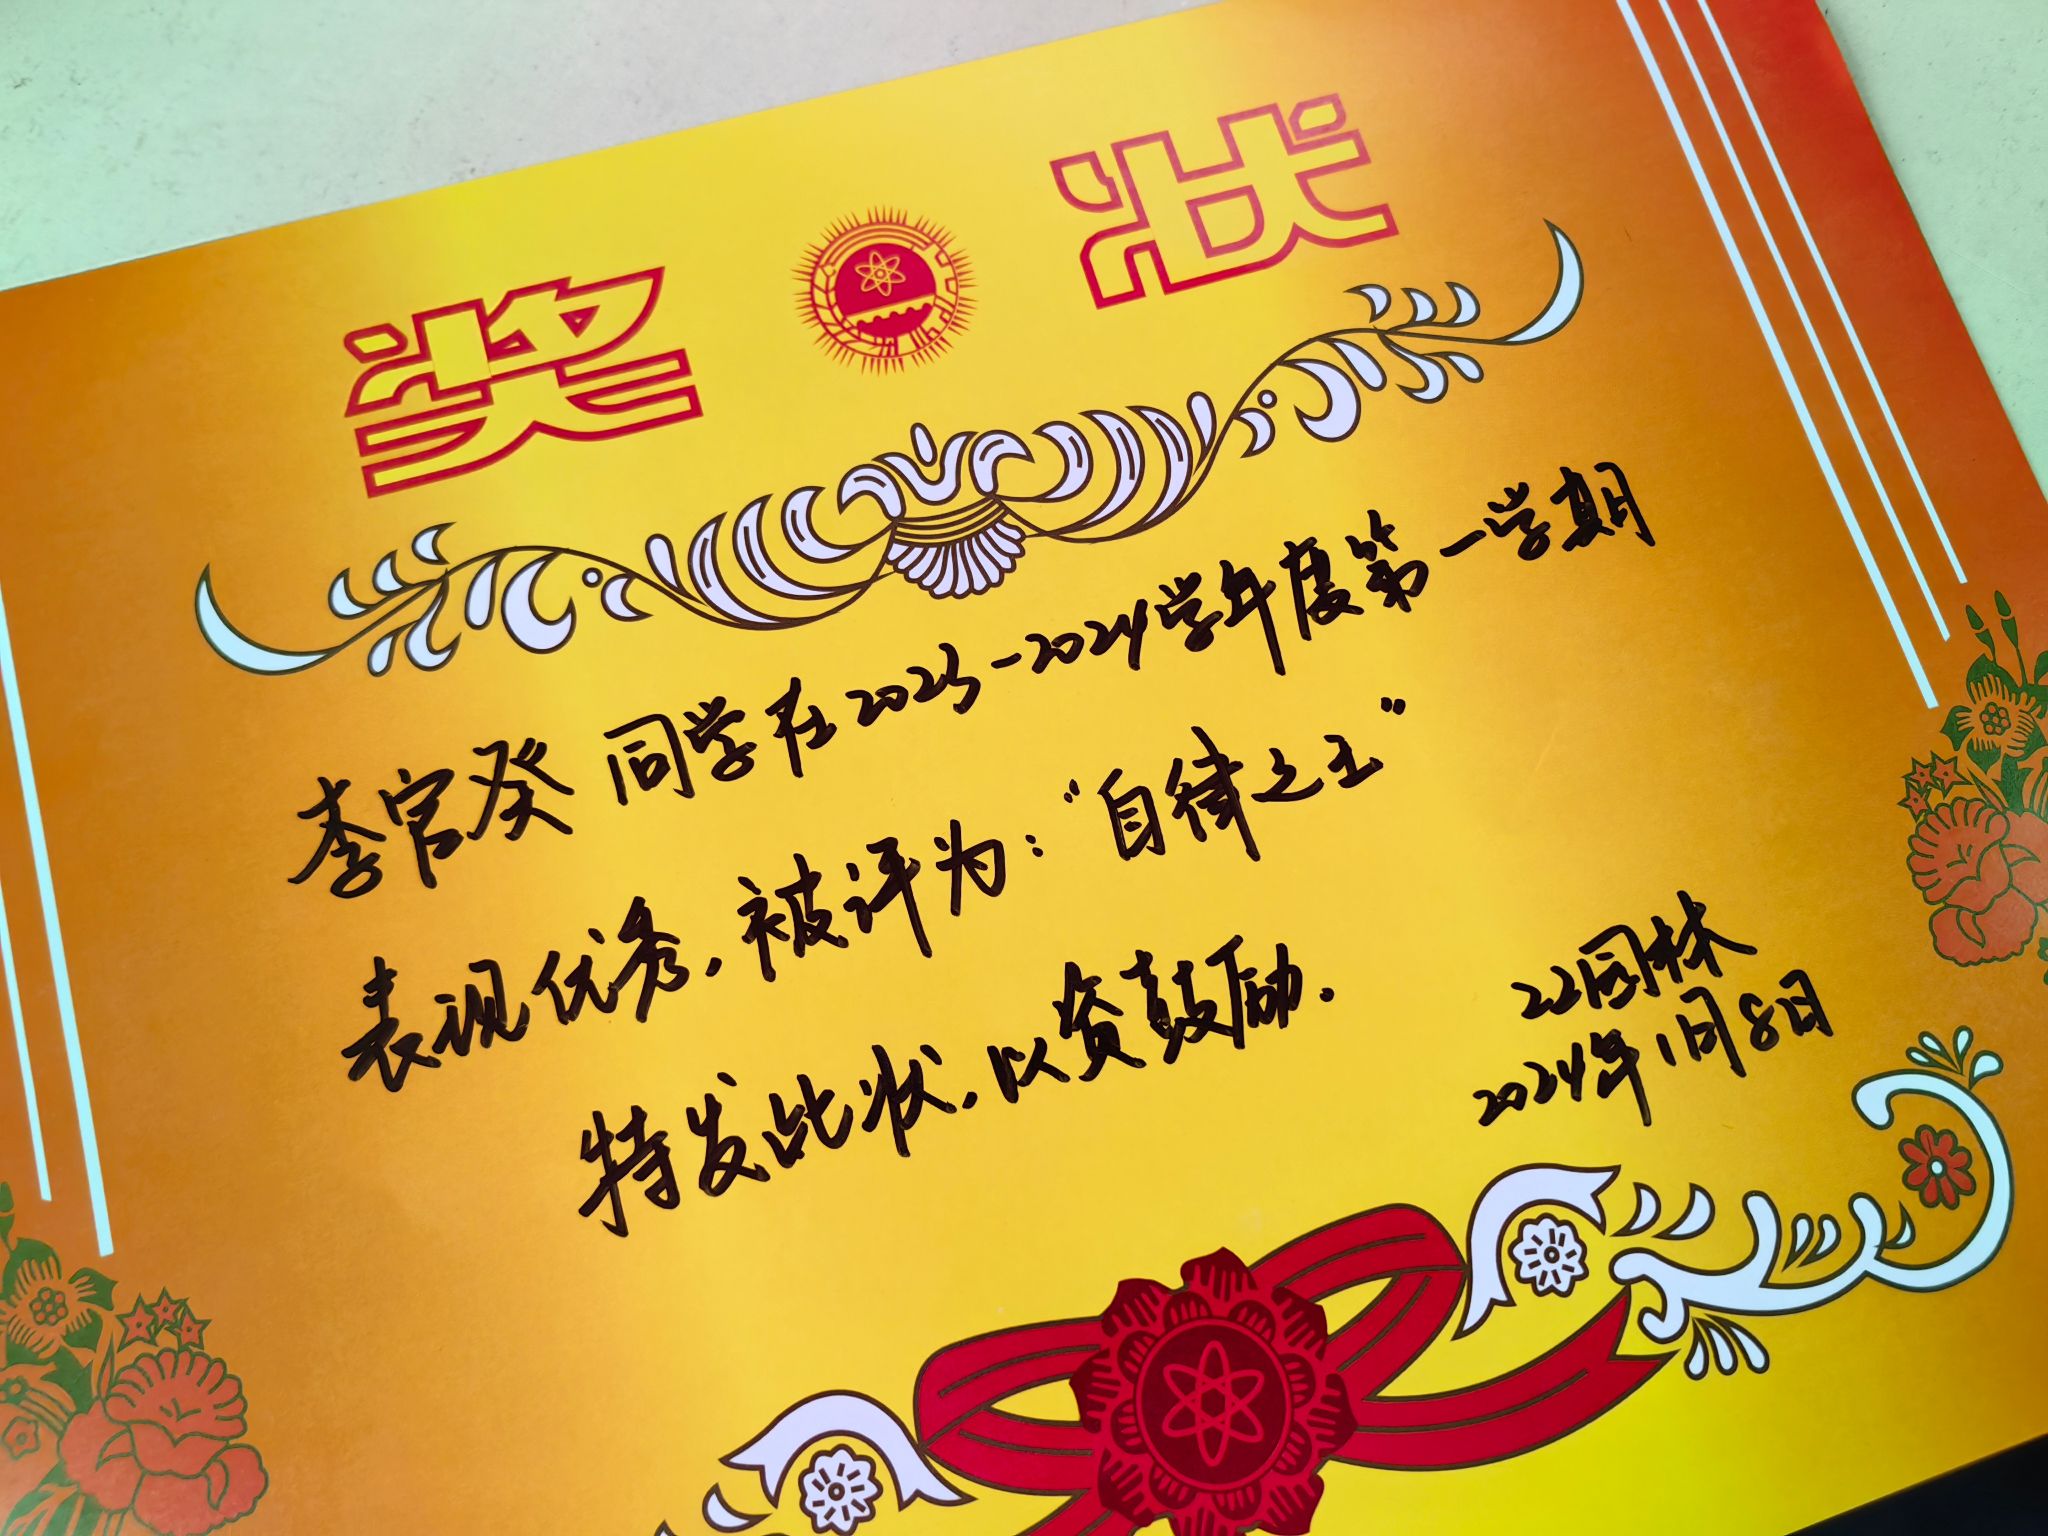 奖状
李官癸 同学在2023-2024学年度第一学期
表现优秀,被评为:“自律之王”
特发此状,以资鼓励.
22园林
2024年1月8日